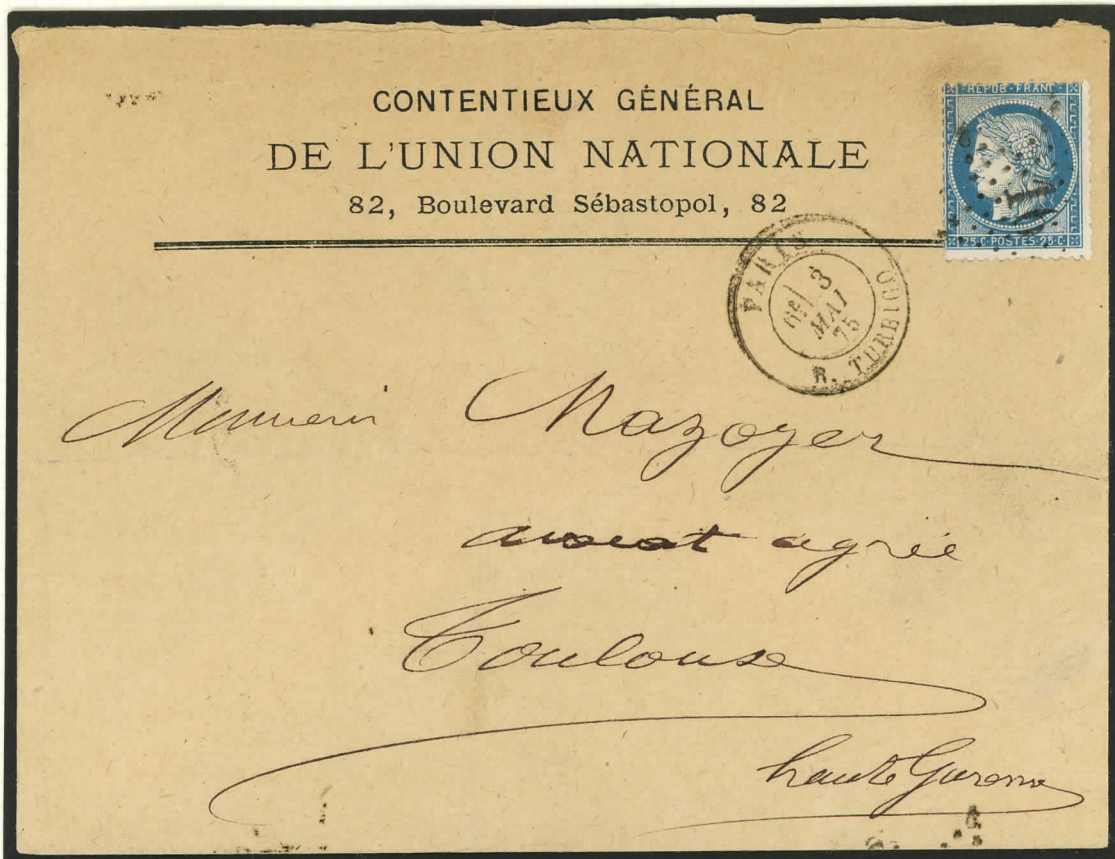 CONTENTIEUX GÉNÉRAL
DE L'UNION NATIONALE
82, Boulevard Sébastopol, 82
REPUB·FRANC
25·C·POSTES·25·C
PARIS
6E 3
MAI
75
R. TURBIGO
Monsieur Mazoyer
avocat agréé
Toulouse
haute Garonne